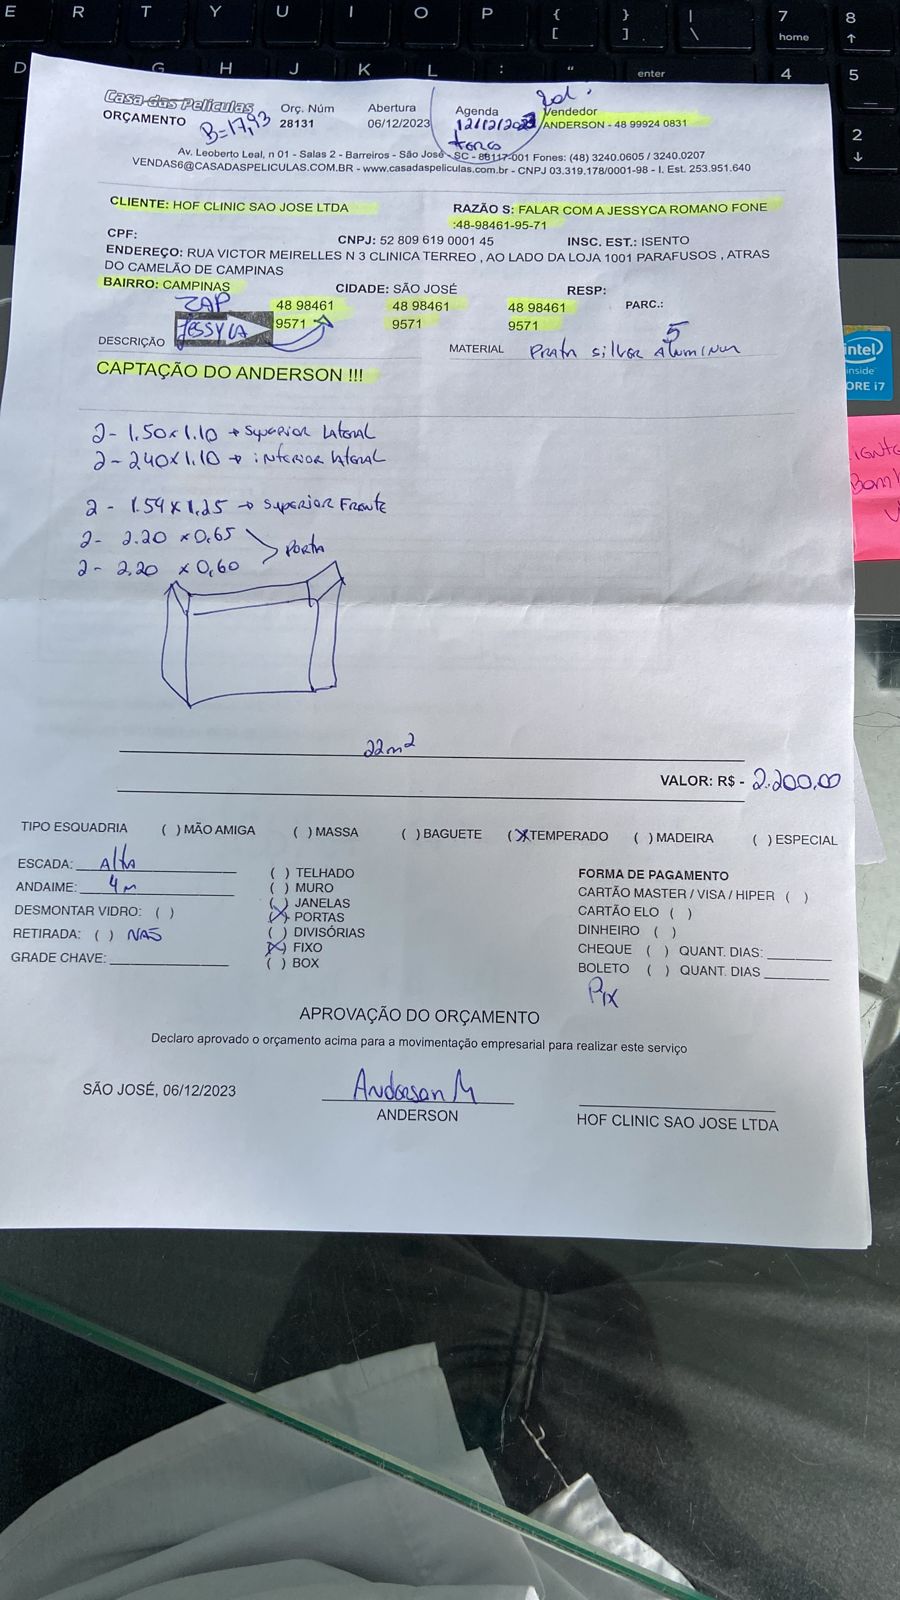 E R T Y U I O P { [ } ] | \ 7 home 8
D G H J K L : " enter 4 5
2
Casa das Películas
ORÇAMENTO
B=17,93
Orç. Núm
28131
Abertura
06/12/2023
Agenda
12/12/2023
Vendedor
ANDERSON - 48 99924 0831
Av. Leoberto Leal, n 01 - Salas 2 - Barreiros - São José - SC - 88117-001 Fones: (48) 3240.0605 / 3240.0207
VENDAS6@CASADASPELICULAS.COM.BR - www.casadaspeliculas.com.br - CNPJ 03.319.178/0001-98 - I. Est. 253.951.640
CLIENTE: HOF CLINIC SAO JOSE LTDA
RAZÃO S: FALAR COM A JESSYCA ROMANO FONE
:48-98461-95-71
CPF:
CNPJ: 52 809 619 0001 45
INSC. EST.: ISENTO
ENDEREÇO: RUA VICTOR MEIRELLES N 3 CLINICA TERREO , AO LADO DA LOJA 1001 PARAFUSOS , ATRAS
DO CAMELÃO DE CAMPINAS
BAIRRO: CAMPINAS
CIDADE: SÃO JOSÉ
RESP:
PARC.:
ZAP
JESSYCA
48 98461 48 98461 48 98461
9571 9571 9571
DESCRIÇÃO
MATERIAL Prata Silver Aluminun 5
CAPTAÇÃO DO ANDERSON !!!
2- 1.50x1.10 → Superior Lateral
2- 240x1.10 → inferior lateral
2 - 1.54x1.25 → Superior Frente
2- 2.20 x0,65
Porta
2- 2,20 x0,60
22m²
VALOR: R$ - 2.200,00
TIPO ESQUADRIA ( ) MÃO AMIGA ( ) MASSA ( ) BAGUETE (X) TEMPERADO ( ) MADEIRA ( ) ESPECIAL
ESCADA: Alta
ANDAIME: 4m
DESMONTAR VIDRO: ( )
RETIRADA: ( ) NÃO
GRADE CHAVE:
( ) TELHADO
( ) MURO
( ) JANELAS
(X) PORTAS
( ) DIVISÓRIAS
(X) FIXO
( ) BOX
FORMA DE PAGAMENTO
CARTÃO MASTER / VISA / HIPER ( )
CARTÃO ELO ( )
DINHEIRO ( )
CHEQUE ( ) QUANT. DIAS:
BOLETO ( ) QUANT. DIAS
Pix
APROVAÇÃO DO ORÇAMENTO
Declaro aprovado o orçamento acima para a movimentação empresarial para realizar este serviço
SÃO JOSÉ, 06/12/2023
Anderson M
ANDERSON
HOF CLINIC SAO JOSE LTDA
intel
inside
CORE i7